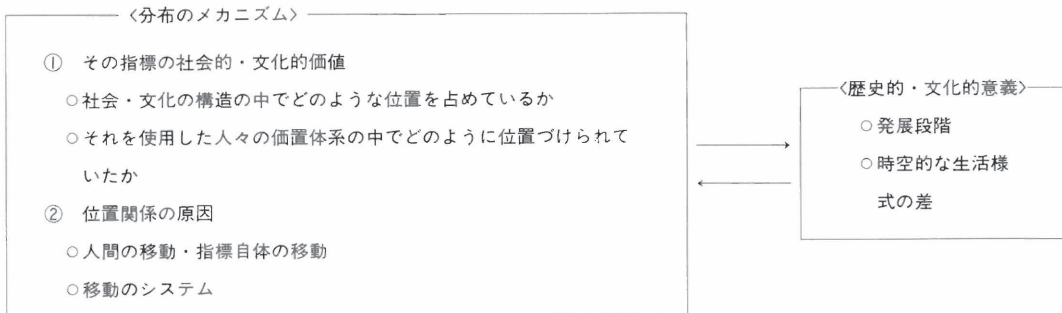 〈分布のメカニズム〉
① その指標の社会的・文化的価値
○社会・文化の構造の中でどのような位置を占めているか
○それを使用した人々の価置体系の中でどのように位置づけられて
いたか
② 位置関係の原因
○人間の移動・指標自体の移動
○移動のシステム
〈歴史的・文化的意義〉
○発展段階
○時空的な生活様
式の差